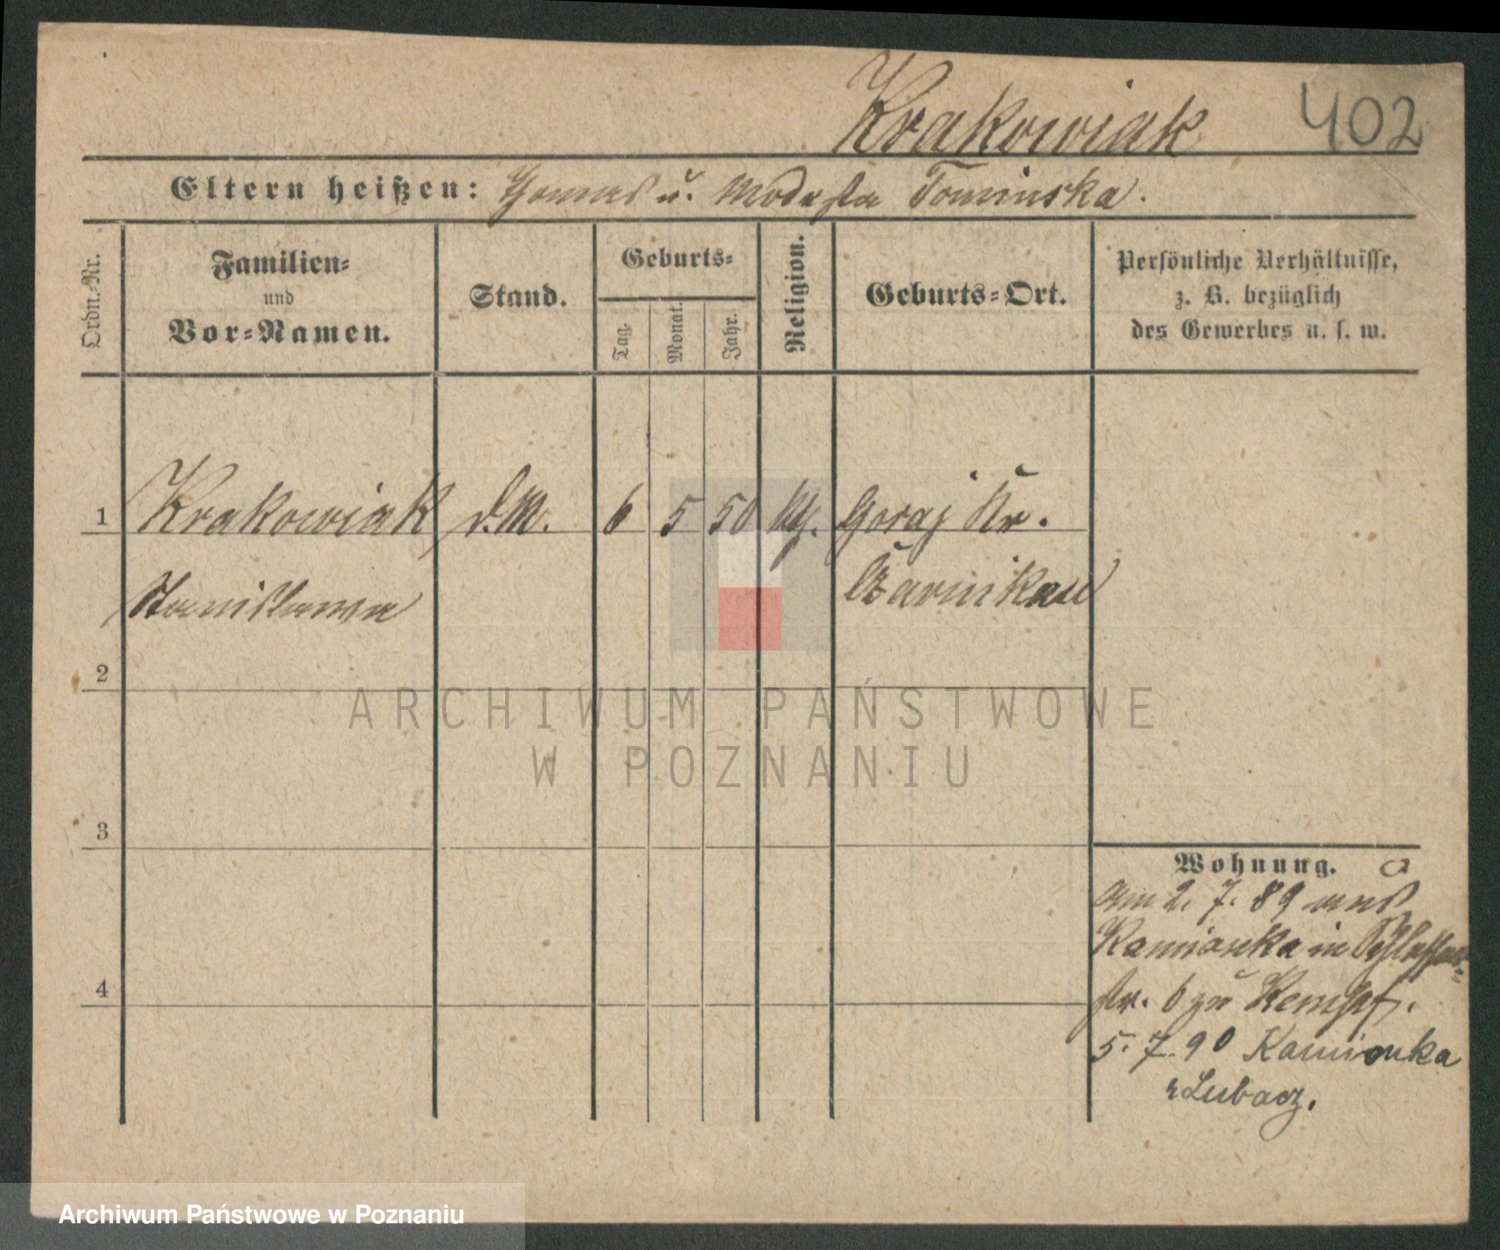 Krakowiak 402
Eltern heißen: Thomas u. Modesta Tominska.
Ordn.-Nr.
Familien-
und
Vor-Namen.
Stand.
Geburts-
Tag.
Monat.
Jahr.
Religion.
Geburts-Ort.
Persönliche Verhältnisse,
z. B. bezüglich
des Gewerbes u. s. w.
1 Krakowiak d.M. 6 5 50 kth. Goraj Kr.
Stanislawa Czarnikau
2
ARCHIWUM PAŃSTWOWE
W POZNANIU
3
Wohnung.
am 2. 7. 89 aus
Kamionka in Schlosser-
str. 6 zu Kempf.
4
5. 7. 90 Kamionka
Lubacz.
Archiwum Państwowe w Poznaniu